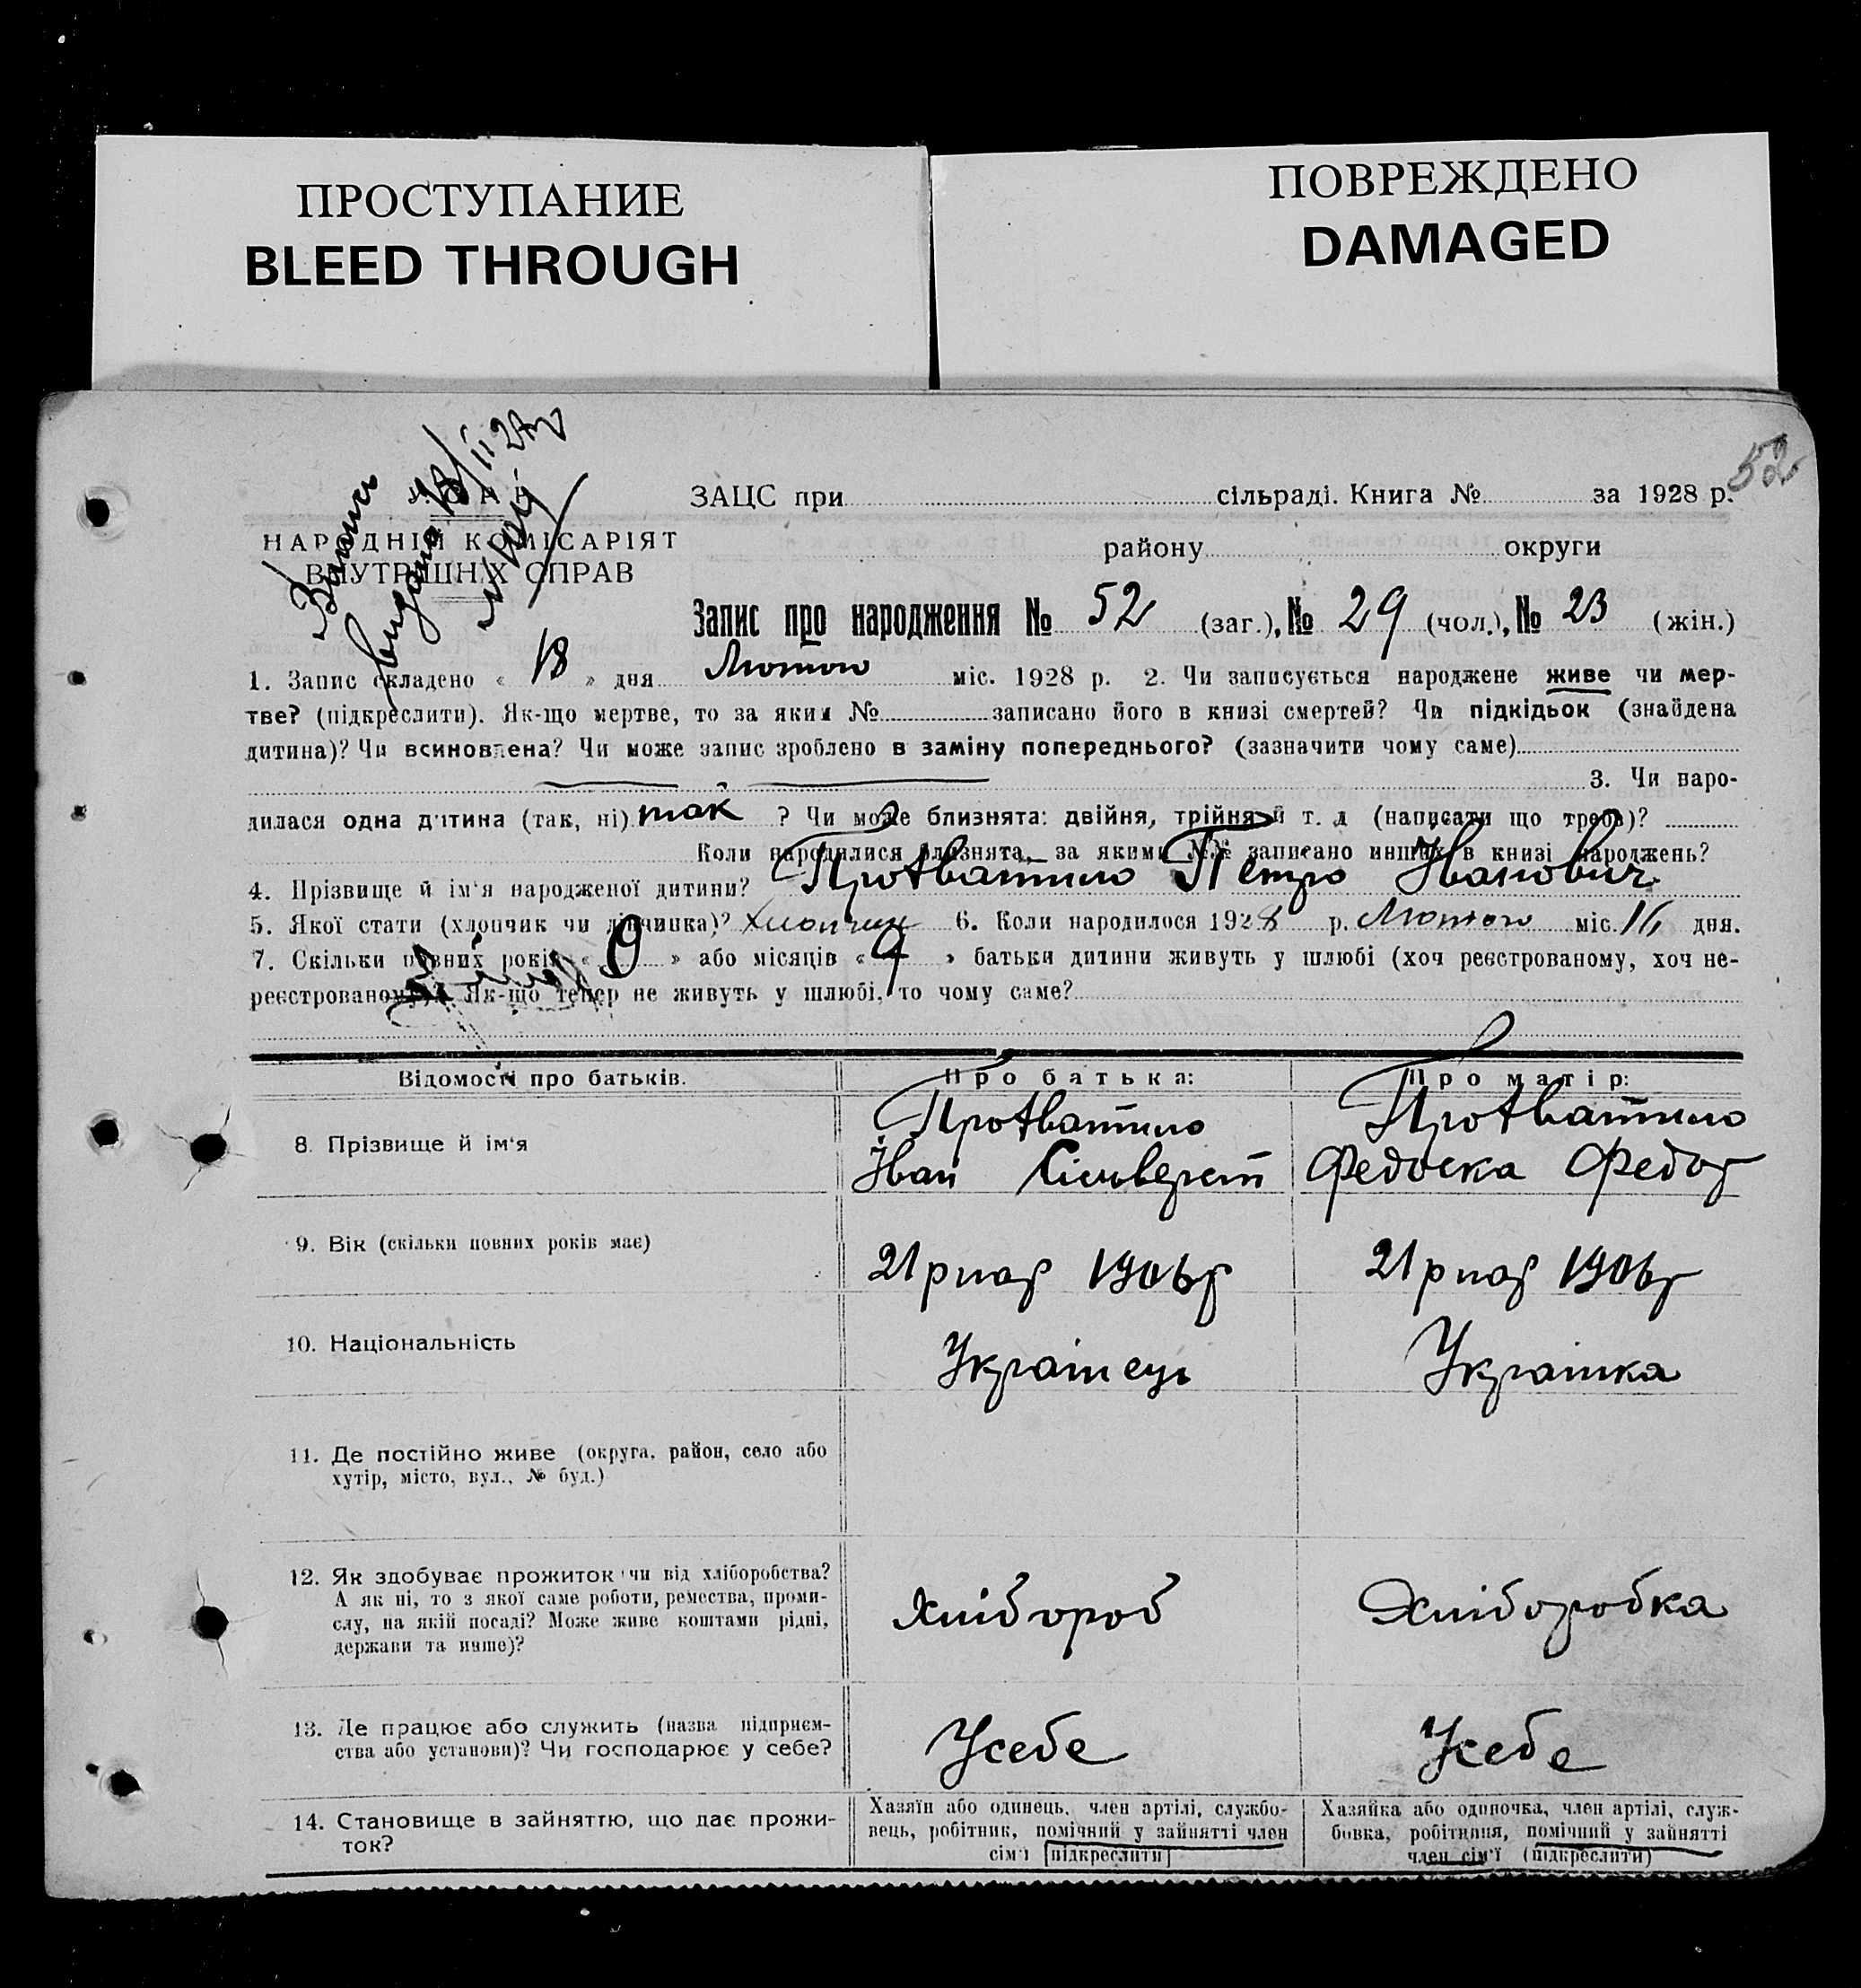 ПРОСТУПАНИЕ
BLEED THROUGH
ПОВРЕЖДЕНО
DAMAGED
52
Запись
видано
ЗАЦС при сільраді. Книга № за 1928 р.
НАРОДНІЙ КОМІСАРІЯТ
ВНУТРІШНІХ СПРАВ
району округи
Запис про народження № 52 (заг.), № 29 (чол.), № 23 (жін.)
1. Запис складено « 18 » дня Лютого міс. 1928 р. 2. Чи записується народжене живе чи мер-
тве? (підкреслити). Як-що мертве, то за яким № записано його в книзі смертей? Чи підкідьок (знайдена
дитина)? Чи всиновлена? Чи може запис зроблено в заміну попереднього? (зазначити чому саме)
3. Чи наро-
дилася одна дитина (так, ні) так ? Чи може близнята: двійня, трійня й т. д (написати що треба)?
Коли народилися близнята, за якими №№ записано инших в книзі народжень?
4. Прізвище й ім'я народженої дитини? Петро Іванович
5. Якої стати (хлопчик чи дівчинка)? Хлопчик 6. Коли народилося 1928 р. Лютого міс. 16 дня.
7. Скільки повних років « 0 » або місяців « 9 » батьки дитини живуть у шлюбі (хоч реєстрованому, хоч не-
реєстрованому)? Як-що тепер не живуть у шлюбі, то чому саме?
Відомості про батьків. Про батька: Про матір:
8. Прізвище й ім'я
Іван Федоска Федор
9. Вік (скільки повних років має) 21 1906р 21 1906р
10. Національність Українець Українка
11. Де постійно живе (округа, район, село або
хутір, місто, вул., № буд.)
12. Як здобуває прожиток чи від хліборобства?
А як ні, то з якої саме роботи, ремества, проми-
слу, на якій посаді? Може живе коштами рідні,
держави та инше)?
Хлібороб Хліборобка
13. Де працює або служить (назва підприєм-
ства або установи)? Чи господарює у себе?
Усебе Усебе
14. Становище в зайняттю, що дає прожи-
ток?
Хазяїн або одинець, член артілі, службо-
вець, робітник, помічний у зайнятті член
сім'ї (підкреслити)
Хазяйка або одиночка, член артілі, служ-
бовка, робітниця, помічний у зайнятті
член сім'ї (підкреслити)